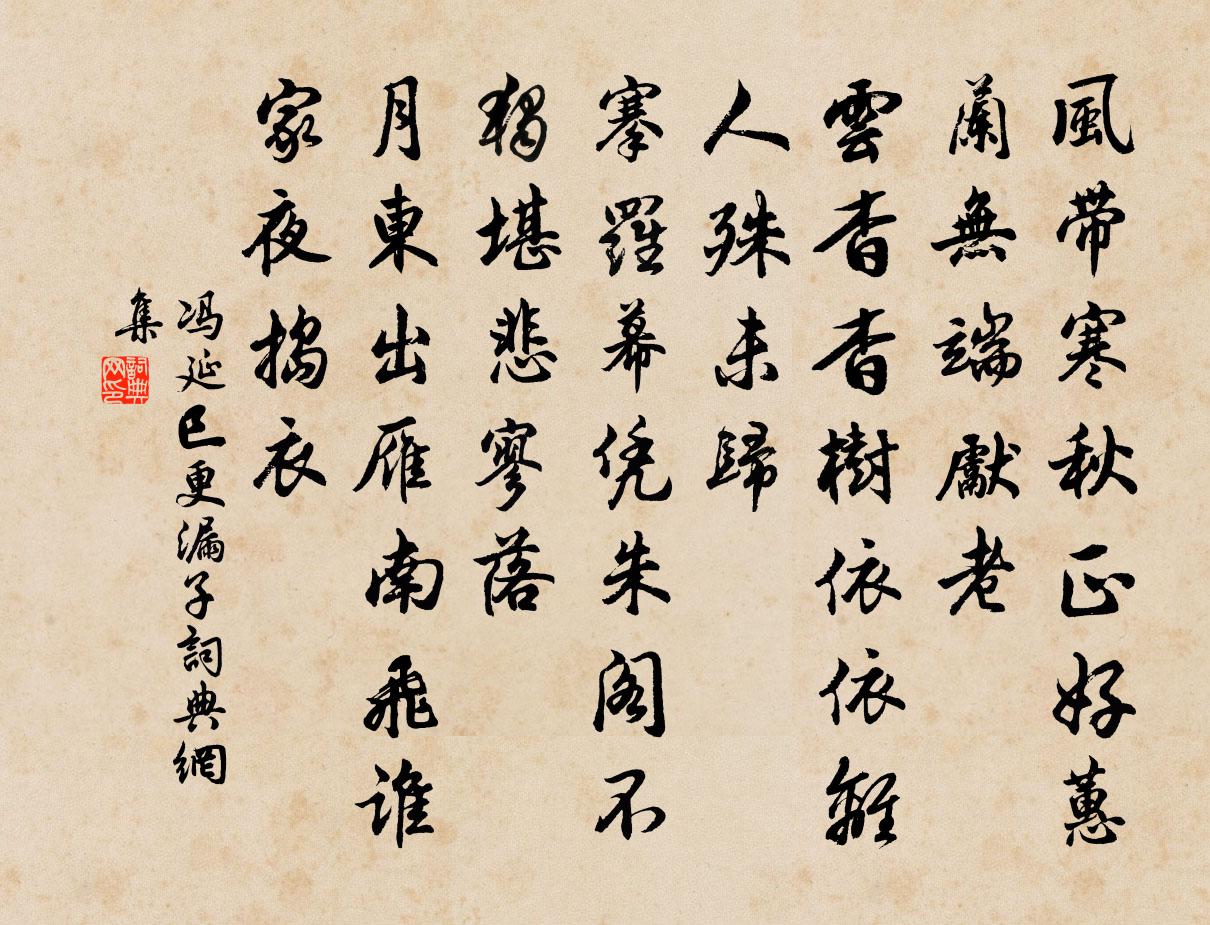 風带寒秋正好蕙
蘭無端獻老
雲杳杳樹依依離
人殊未歸
搴羅幕凭朱閣不
獨堪悲寥落
月東出雁南飛誰
家夜搗衣
冯延巳更漏子詞典網
集
詞典
网印